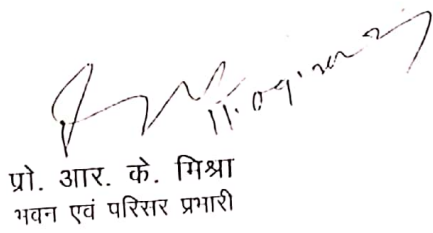 प्रो. आर. के. मिश्रा
भवन एवं परिसर प्रभारी